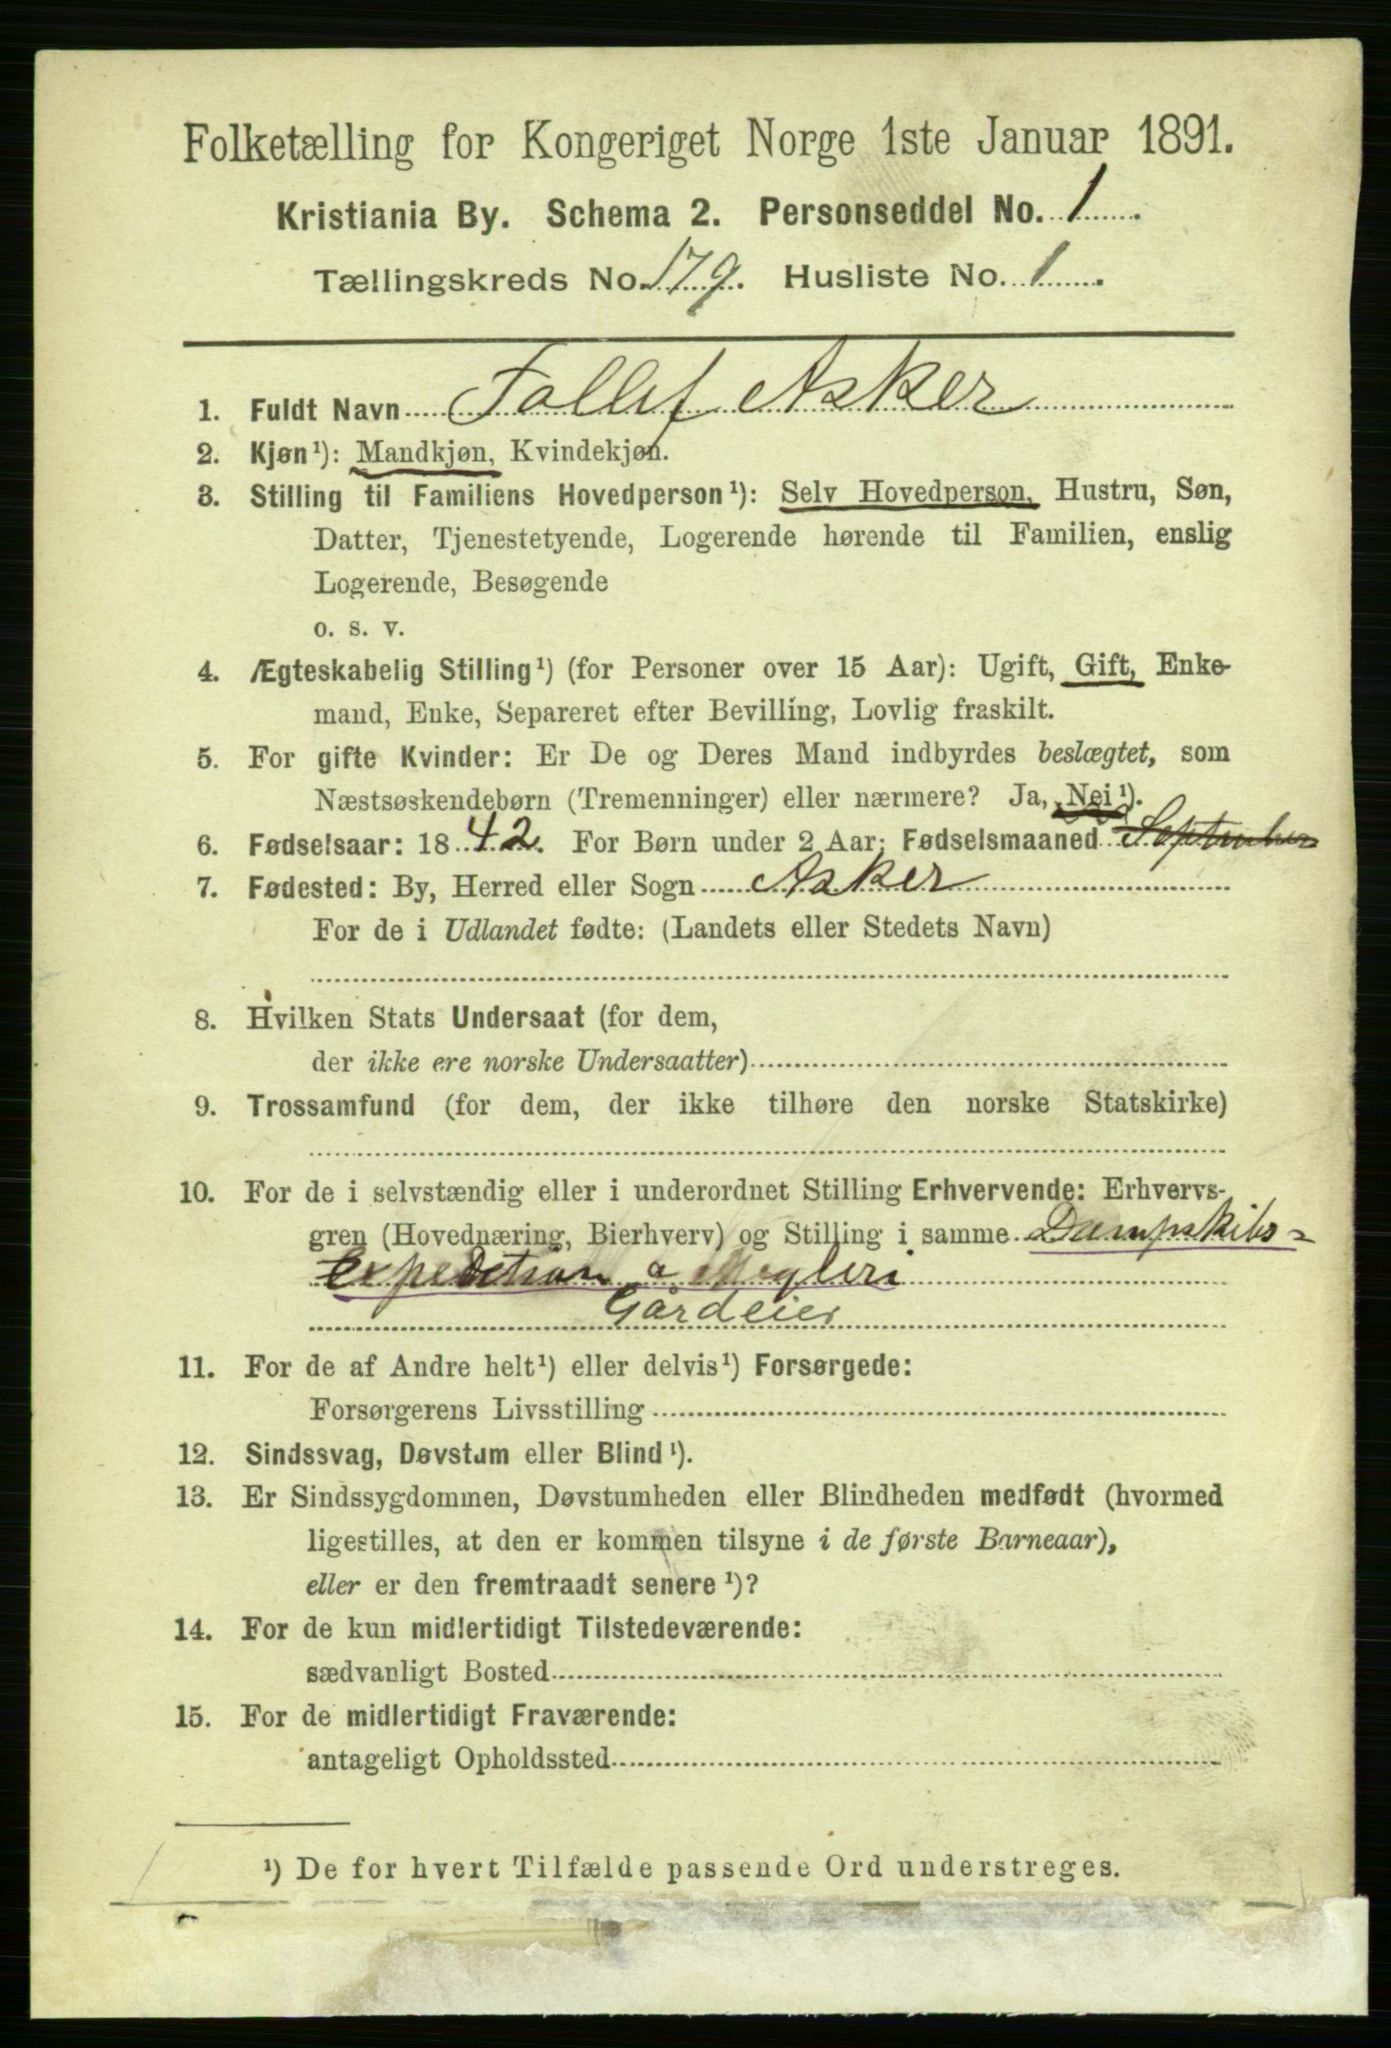 Folketælling for Kongeriget Norge 1ste Januar 1891.
Kristiania By. Schema 2. Personseddel No. 1.
Tællingskreds No. 179. Husliste No. 1.
1. Fuldt Navn Tollef Asker
2. Kjøn¹): Mandkjøn, Kvindekjøn.
3. Stilling til Familiens Hovedperson¹): Selv Hovedperson, Hustru, Søn,
Datter, Tjenestetyende, Logerende hørende til Familien, enslig
Logerende, Besøgende
o. s. v.
4. Ægteskabelig Stilling¹) (for Personer over 15 Aar): Ugift, Gift, Enke-
mand, Enke, Separeret efter Bevilling, Lovlig fraskilt.
5. For gifte Kvinder: Er De og Deres Mand indbyrdes beslægtet, som
Næstsøskendebørn (Tremenninger) eller nærmere? Ja, Nei¹).
6. Fødselsaar: 1842. For Børn under 2 Aar: Fødselsmaaned September
7. Fødested: By, Herred eller Sogn Asker
For de i Udlandet fødte: (Landets eller Stedets Navn)
8. Hvilken Stats Undersaat (for dem,
der ikke ere norske Undersaatter)
9. Trossamfund (for dem, der ikke tilhøre den norske Statskirke)
10. For de i selvstændig eller i underordnet Stilling Erhvervende: Erhvervs-
gren (Hovednæring, Bierhverv) og Stilling i samme Dampskibs-
expedition o Mægleri
Gårdeier
11. For de af Andre helt¹) eller delvis¹) Forsørgede:
Forsørgerens Livsstilling
12. Sindssvag, Døvstum eller Blind¹).
13. Er Sindssygdommen, Døvstumheden eller Blindheden medfødt (hvormed
ligestilles, at den er kommen tilsyne i de første Barneaar),
eller er den fremtraadt senere¹)?
14. For de kun midlertidigt Tilstedeværende:
sædvanligt Bosted
15. For de midlertidigt Fraværende:
antageligt Opholdssted
¹) De for hvert Tilfælde passende Ord understreges.